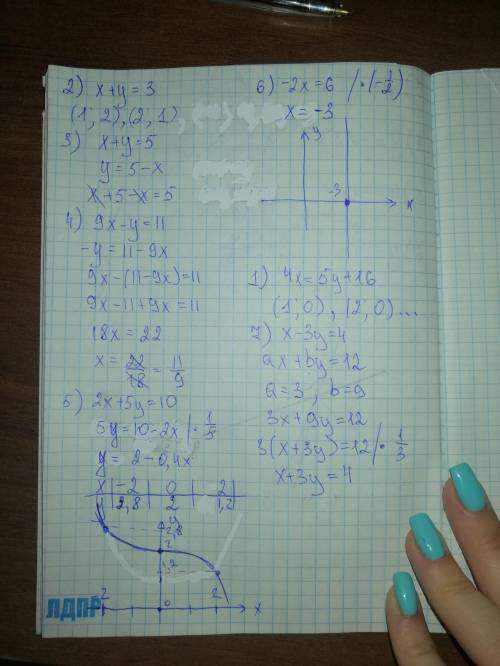 2) x+y=3
(1; 2), (2; 1)
3) x+y=5
y=5-x
x+5-x=5
4) 9x-y=11
-y=11-9x
9x-(11-9x)=11
9x-11+9x=11
18x=22
x= 22/18 = 11/9
5) 2x+5y=10
5y=10-2x |· 1/5
y= 2-0,4x
x | -2 | 0 | 2 |
y | 2,8 | 2 | 1,2 |
y
2,8
2
1,2
-2 0 2 x
ЛДПР
6) -2x=6 /·(-1/2)
x=-3
y
-3 x
1) 4x=5y+16
(1; 0), (2; 0)...
7) x-3y=4
ax+by=12
a=3, b=9
3x+9y=12
3(x+3y)=12 |· 1/3
x+3y=4